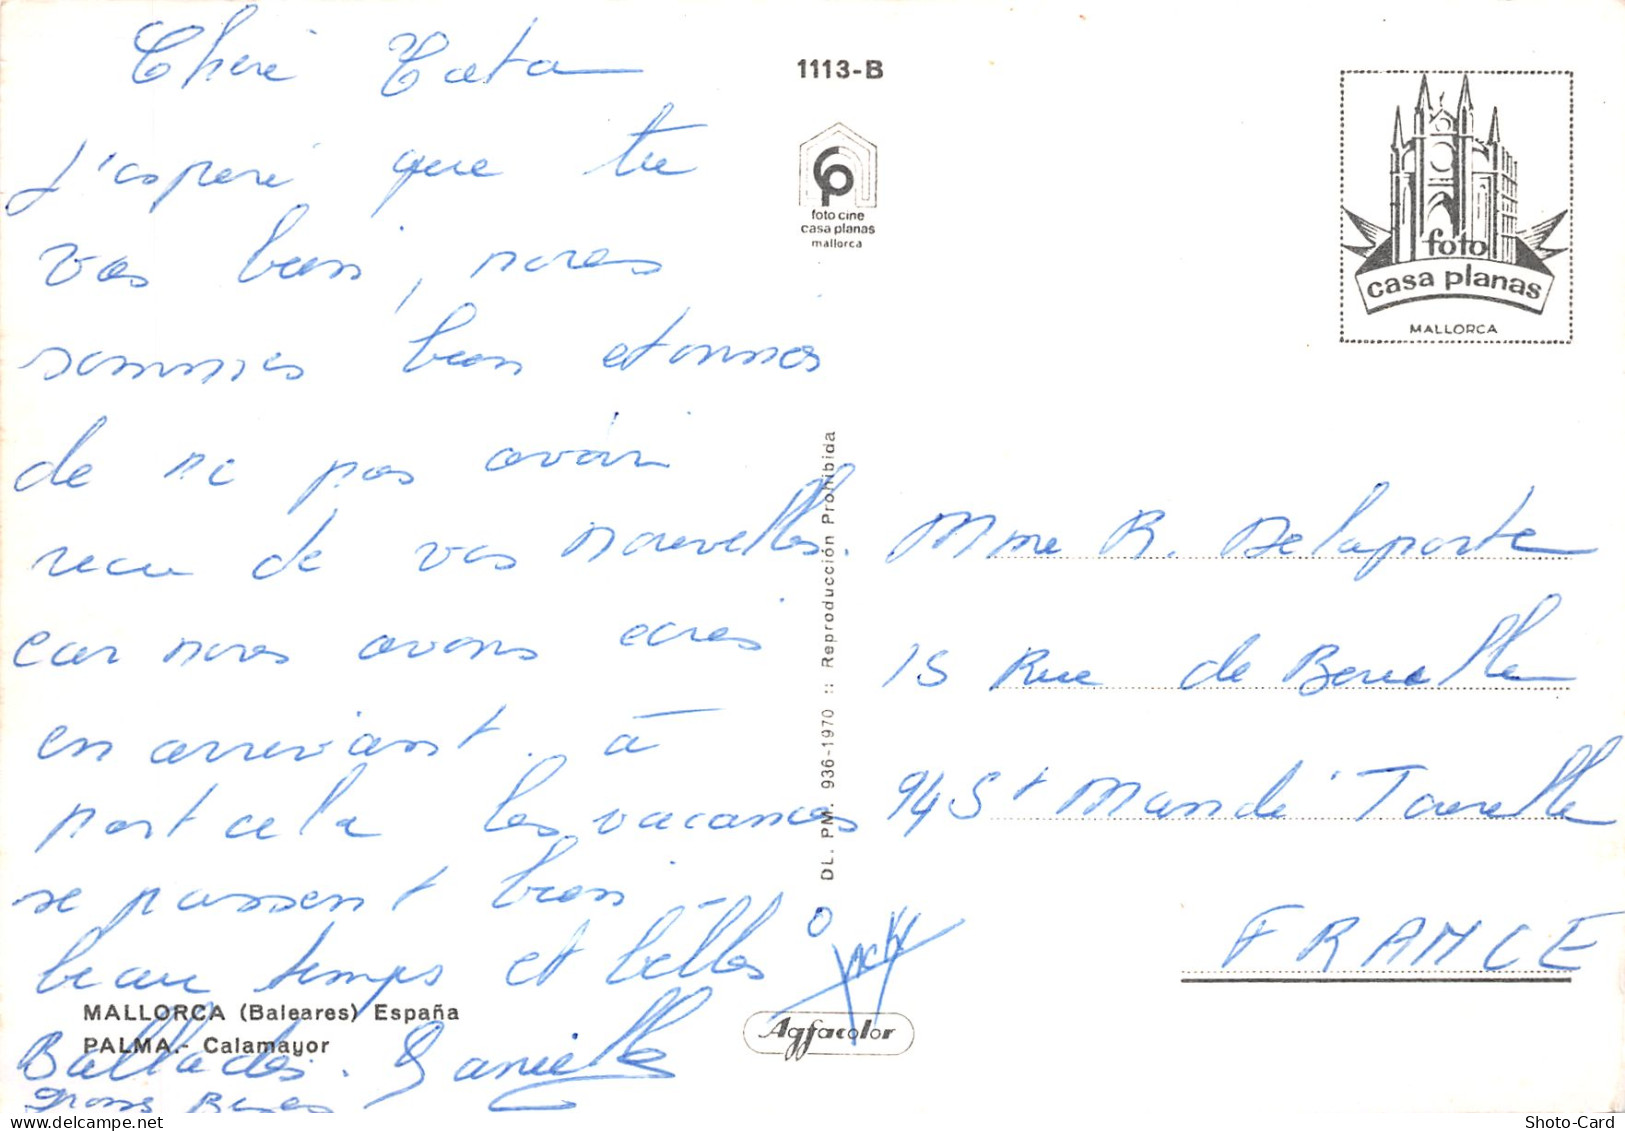 Cheré Tata
J'esperé que tu
vas bien, nous
sommes bien etonnes
de ne pas avoir
recu de vos nouvelles.
car nous avons ecris
en arrivant. à
part cela les vacances
se passent bien
beau temps et bélles
Ballades. Danielle
Gross Bises
1113-B
foto cine
casa planas
mallorca
foto
casa planas
MALLORCA
DL. PM. 936-1970 :: Reproducción Prohibida
Mme R. Delaporte
15 Rue de
94 St Mandé Tourelle
FRANCE
MALLORCA (Baleares) España
PALMA.- Calamayor
Agfacolor
Shoto-Card